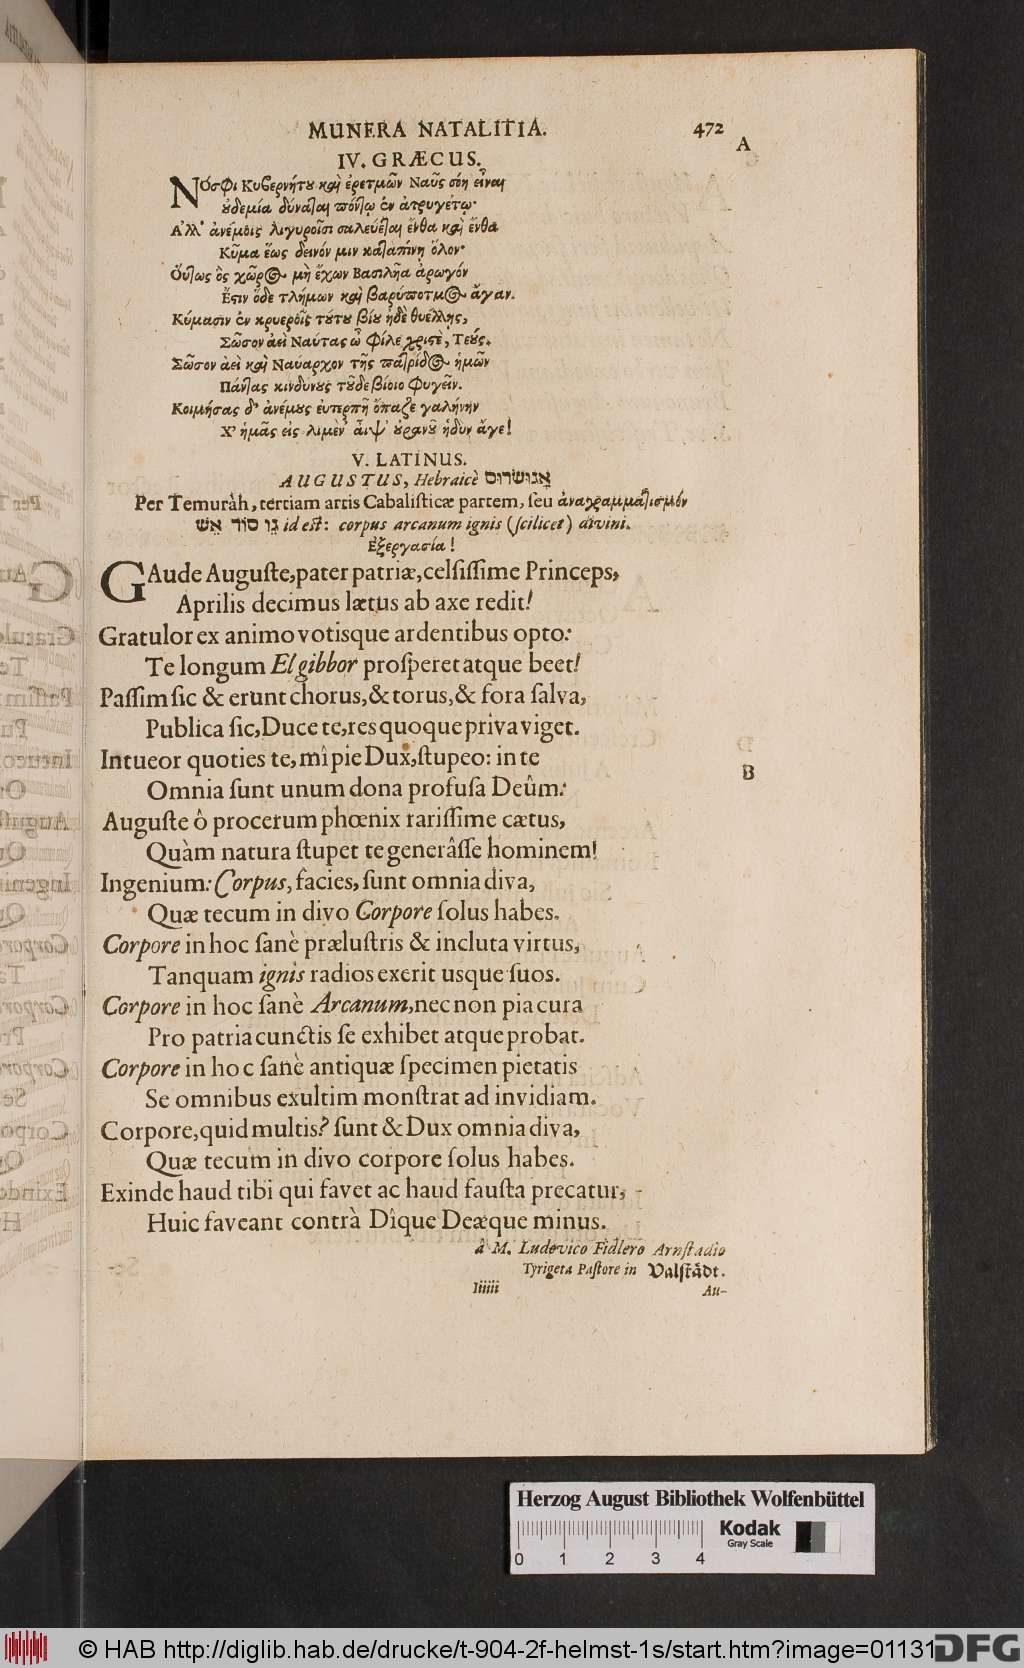 MUNERA NATALITIA. 472
A
IV. GRÆCUS.
ΝΌσφι Κυβερνήτου καὶ ἐρετμῶν Ναῦς σόη εἶναι
οὐδεμία δύναται πόντῳ ἐν ἀτρυγέτῳ·
Ἀλλ' ἀνέμοις λιγυροῖσι σαλεύεται ἔνθα καὶ ἔνθα
Κῦμα ἕως δεινόν μιν καταπίνῃ ὅλον·
Οὕτως ὃς χῶρος μὴ ἔχων Βασιλῆα ἀρωγόν
Ἔστιν ὅδε τλήμων καὶ βαρύποτμος ἄγαν.
Κύμασιν ἐν κρυεροῖς τούτου βίου ἠδὲ θυέλλης,
Σῶσον ἀεὶ Ναύτας ὦ φίλε χριστὲ, Τεούς.
Σῶσον ἀεὶ καὶ Ναύαρχον τῆς πατρίδος ἡμῶν
Πάντας κινδύνους τοῦδε βίοιο φυγεῖν.
Κοιμήσας δ' ἀνέμους εὐτερπῆ ὄπαζε γαλήνην
Χ' ἡμᾶς εἰς λιμέν' αἶψ' οὐρανοῦ ἡδὺν ἄγε!
V. LATINUS.
AUGUSTUS, Hebraicè אֲגוּשׂרוּס
Per Temuràh, tertiam artis Cabalisticæ partem, seu ἀναγραμματισμόν
גֵו סוֹד אֵשׁ id est: corpus arcanum ignis (scilicet) divini.
Ἐξεργασία!
GAude Auguste, pater patriæ, celsissime Princeps,
Aprilis decimus lætus ab axe redit!
Gratulor ex animo votisque ardentibus opto:
Te longum El gibbor prosperet atque beet!
Passim sic & erunt chorus, & torus, & fora salva,
Publica sic, Duce te, res quoque priva viget.
Intueor quoties te, mî pie Dux, stupeo: in te
Omnia sunt unum dona profusa Deûm:
B
Auguste ô procerum phœnix rarissime cætus,
Quàm natura stupet te generâsse hominem!
Ingenium: Corpus, facies, sunt omnia diva,
Quæ tecum in divo Corpore solus habes.
Corpore in hoc sanè prælustris & incluta virtus,
Tanquam ignis radios exerit usque suos.
Corpore in hoc sanè Arcanum, nec non pia cura
Pro patria cunctis se exhibet atque probat.
Corpore in hoc sanè antiquæ specimen pietatis
Se omnibus exultim monstrat ad invidiam.
Corpore, quid multis? sunt & Dux omnia diva,
Quæ tecum in divo corpore solus habes.
Exinde haud tibi qui favet ac haud fausta precatur,
Huic faveant contrà Dîque Deæque minus.
â M. Ludovico Fidlero Arnstadio
Tyrigeta Pastore in Valstådt.
Iiiiii Au-
Herzog August Bibliothek Wolfenbüttel
Kodak
Gray Scale
0 1 2 3 4
© HAB http://diglib.hab.de/drucke/t-904-2f-helmst-1s/start.htm?image=01131
DFG